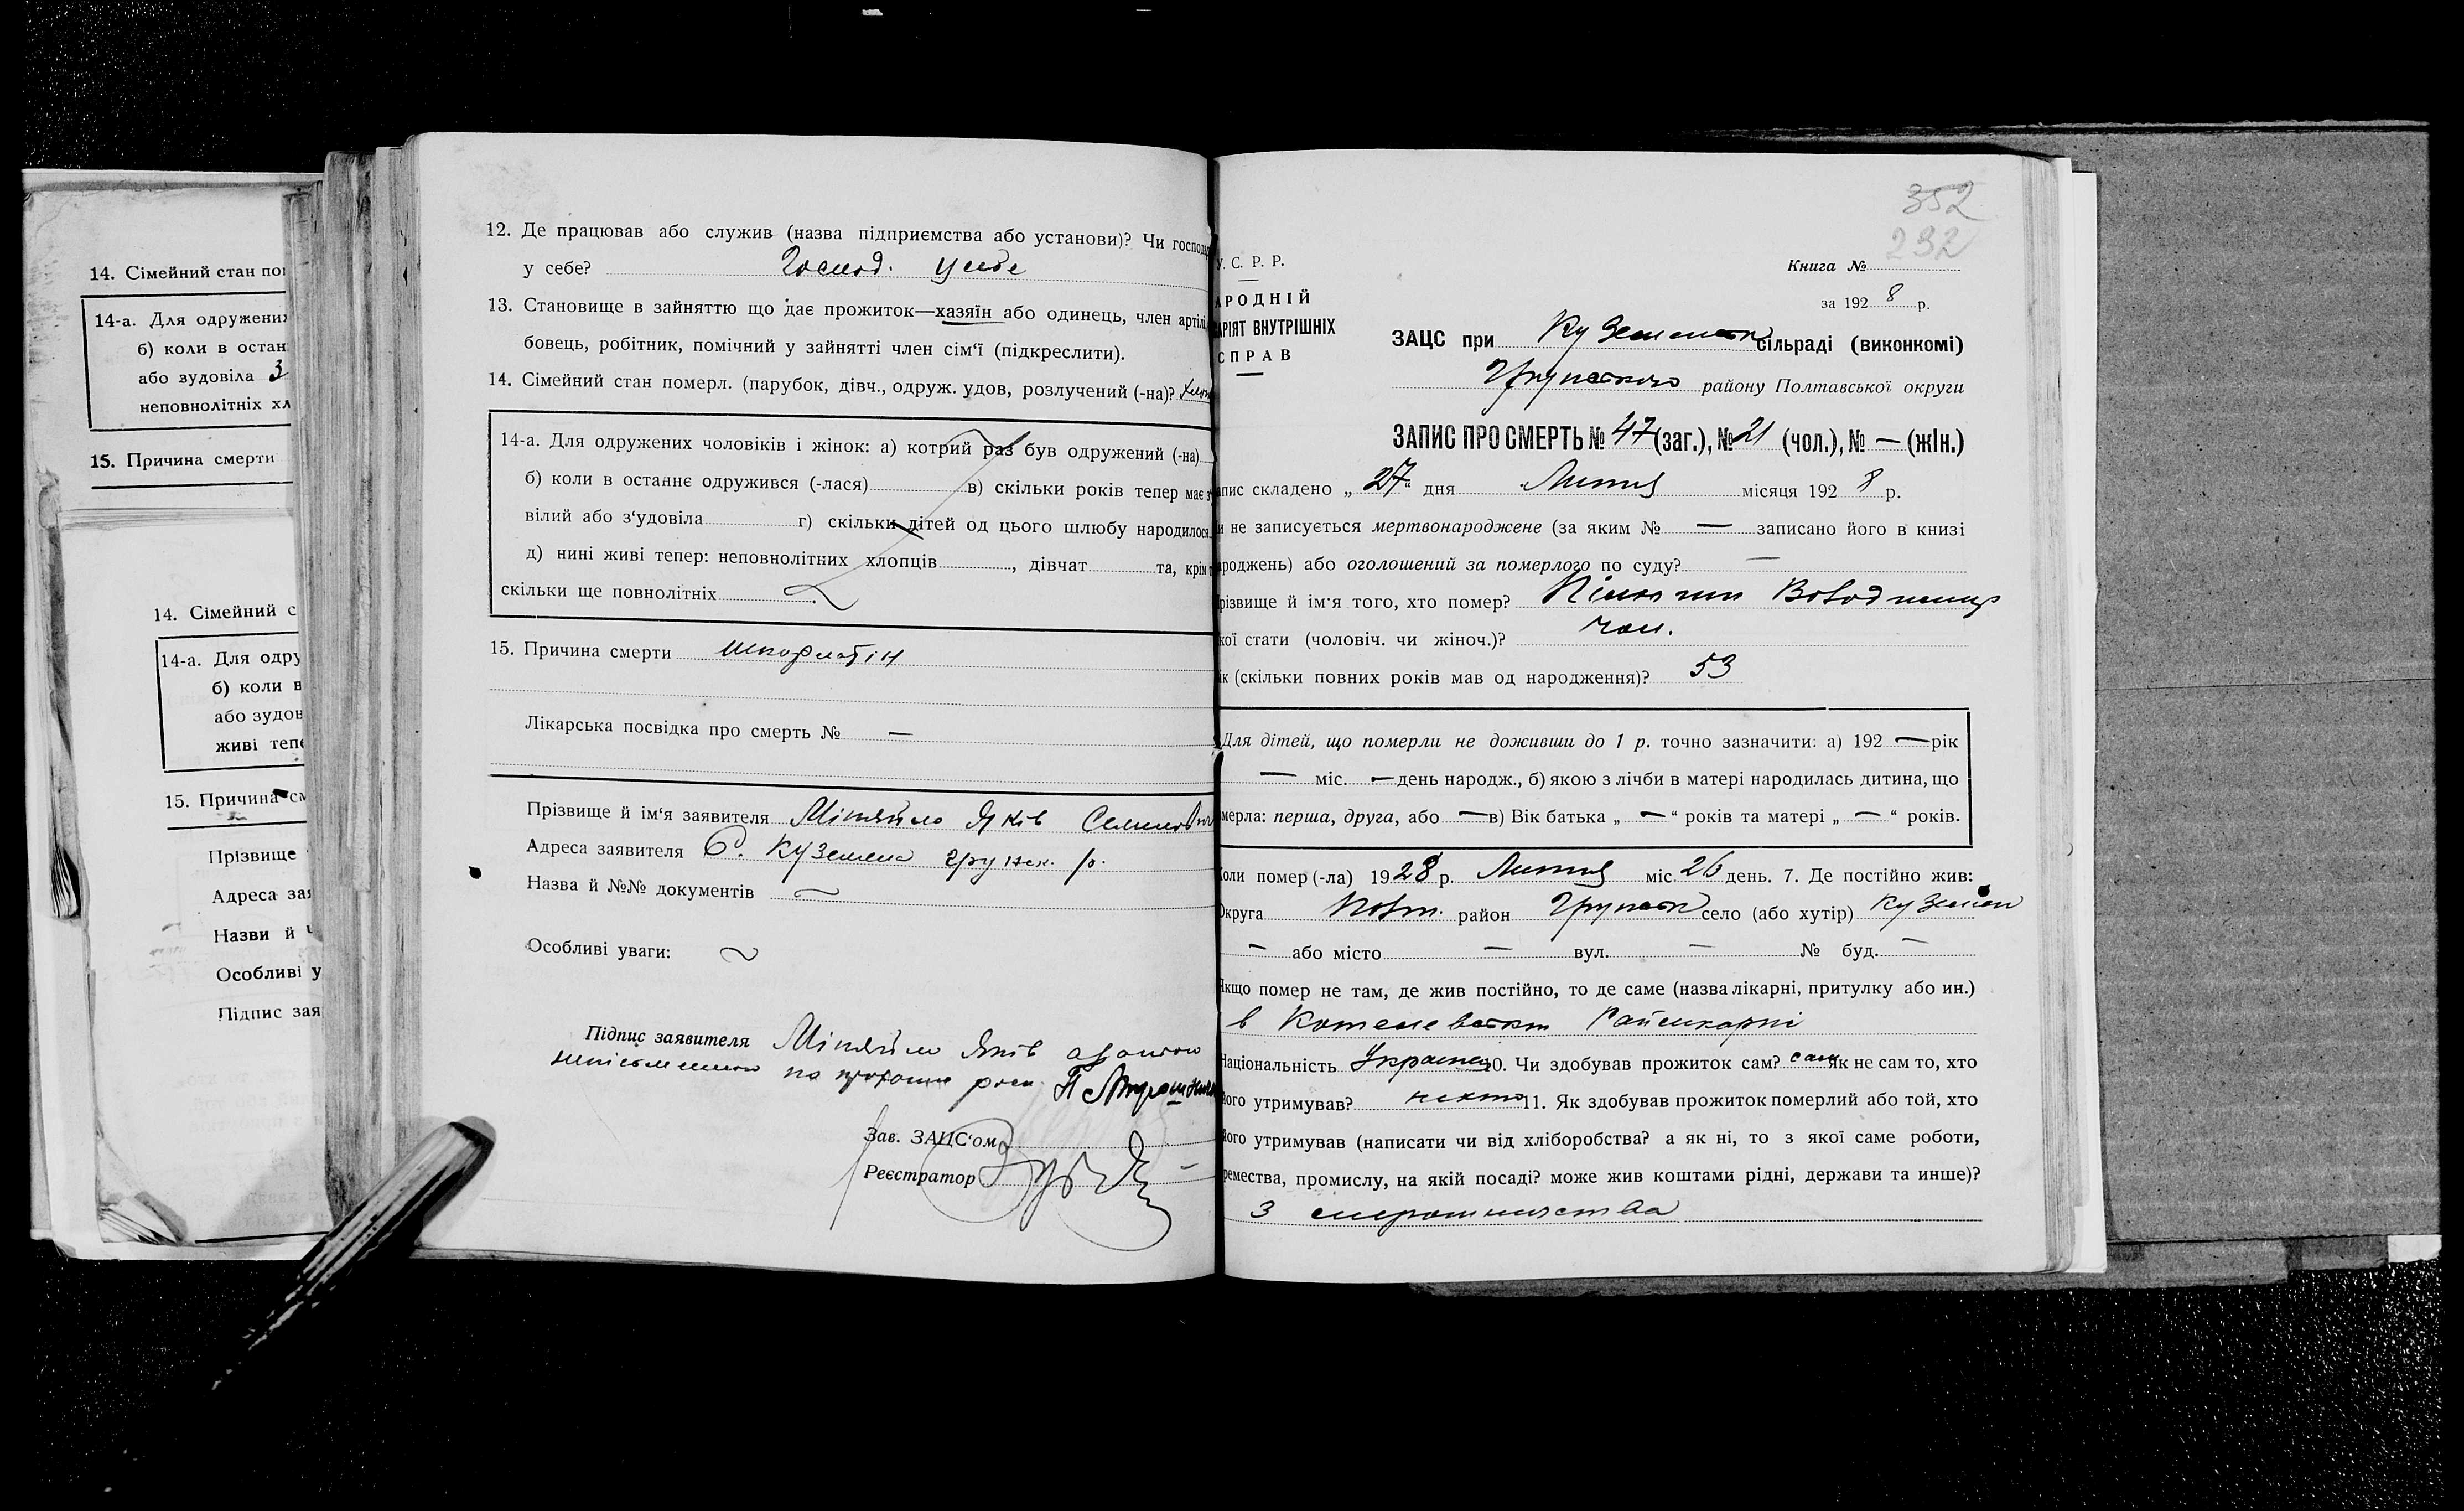 14. Сімейний стан по
14-а. Для одружених
б) коли в остан
або зудовіла 3
неповнолітніх хл
15. Причина смерти
14. Сімейний с
14-а. Для одру
б) коли в
або зудов
живі тепе
15. Причина см
Прізвище
Адреса зая
Назви й
Особливі у
Підпис зая
12. Де працював або служив (назва підприємства або установи)? Чи господар
у себе? Господ. у себе
13. Становище в зайняттю що дає прожиток—хазяїн або одинець, член артілі,
бовець, робітник, помічний у зайнятті член сім'ї (підкреслити).
14. Сімейний стан померл. (парубок, дівч., одруж. удов, розлучений (-на)?
14-а. Для одружених чоловіків і жінок: а) котрий раз був одружений (-на)
б) коли в останнє одружився (-лася) в) скільки років тепер має з
вілий або з'удовіла г) скільки дітей од цього шлюбу народилося
д) нині живі тепер: неповнолітних хлопців , дівчат та, крім т
скільки ще повнолітніх .
15. Причина смерти
Лікарська посвідка про смерть № —
Прізвище й ім'я заявителя Міняйло Яків Семенович
Адреса заявителя С. Куземена грунск. р.
Назва й №№ документів ~
Особливі уваги: ~
Підпис заявителя Міняйло Яків а
Зав. ЗАЦС'ом
Реєстратор
352
232
У. С. Р. Р.
АРОДНІЙ
АРІЯТ ВНУТРІШНІХ
СПРАВ
Книга №
за 1928 р.
ЗАЦС при Куземенск сільраді (виконкомі)
Грунського району Полтавської округи
ЗАПИС ПРО СМЕРТЬ № 47 (заг.), № 21 (чол.), № — (жін.)
апис складено „27“ дня Липня місяця 1928 р.
и не записується мертвонароджене (за яким № — записано його в книзі
ароджень) або оголошений за померлого по суду? —
різвище й ім'я того, хто помер? Володимир
кої стати (чоловіч. чи жіноч.)? чол.
ік (скільки повних років мав од народження)? 53
Для дітей, що померли не доживши до 1 р. точно зазначити: а) 192 — рік
— міс. — день народж., б) якою з лічби в матері народилась дитина, що
мерла: перша, друга, або — в) Вік батька „ — “ років та матері „ — “ років.
Коли помер (-ла) 1928 р. Липня міс 26 день. 7. Де постійно жив:
Округа Полт. район Грунськ село (або хутір) Куземен
— або місто — вул. — № буд. —
Якщо помер не там, де жив постійно, то де саме (назва лікарні, притулку або ин.)
в Котелевскт Райлікарні
Національність Украінец 10. Чи здобував прожиток сам? сам Як не сам то, хто
його утримував? 11. Як здобував прожиток померлий або той, хто
його утримував (написати чи від хліборобства? а як ні, то з якої саме роботи,
ремества, промислу, на якій посаді? може жив коштами рідні, держави та инше)?
З